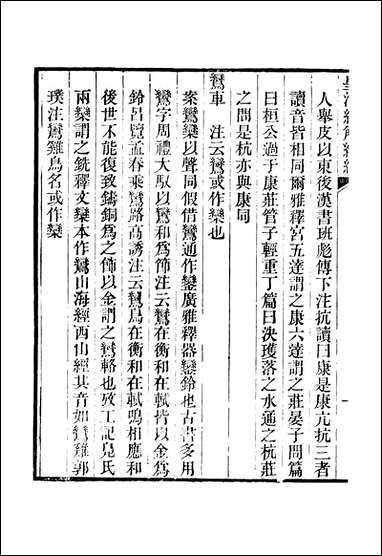 皇清經解續編
人舉皮以東後漢書班彪傳下注抗讀曰康是康亢抗三者
讀音皆相同爾雅釋宮五達謂之康六達謂之莊晏子問篇
曰桓公過于康莊管子輕重丁篇曰決瓁落之水通之杭莊
之間是杭亦與康同
鸞車　注云鸞或作欒也
案鸞欒以聲同假借鸞通作鑾廣雅釋器鑾鈴也古書多用
鸞字周禮大馭以鸞和爲節注云鸞在衡和在軾皆以金爲
鈴呂覽孟春乘鸞路高誘注云鸞鳥在衡和在軾鳴相應和
後世不能復致鑄銅爲之飾以金謂之鸞輅也攷工記鳧氏
兩欒謂之銑釋文欒本作鸞山海經西山經其音如鸞雞郭
璞注鸞雞鳥名或作欒